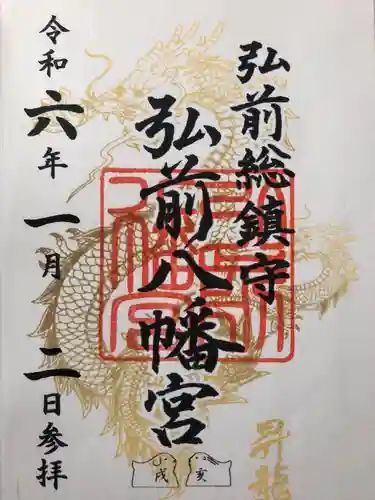 弘前総鎮守
弘前八幡宮
令和六年一月二日参拝
昇龍
戌 亥